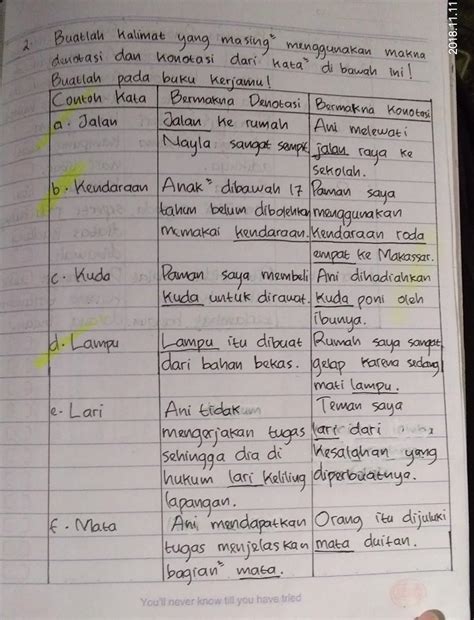 2018.11.11
2. Buatlah kalimat yang masing² menggunakan makna
denotasi dan konotasi dari kata² di bawah ini!
Buatlah pada buku kerjamu!
Contoh Kata | Bermakna Denotasi | Bermakna Konotasi
a. Jalan | Jalan ke rumah | Ani melewati
Nayla sangat sempit | jalan raya ke
sekolah.
b. Kendaraan | Anak² dibawah 17 | Paman saya
tahun belum dibolehkan | menggunakan
memakai kendaraan. | Kendaraan roda
empat ke Makassar.
c. Kuda | Paman saya membeli | Ani dihadiahkan
Kuda untuk dirawat. | Kuda poni oleh
ibunya.
d. Lampu | Lampu itu dibuat | Rumah saya sangat
dari bahan bekas. | gelap karena sedang
mati lampu.
e. Lari | Ani tidak | Teman saya
mengerjakan tugas | lari dari
sehingga dia di | Kesalahan yang
hukum lari keliling | diperbuatnya.
lapangan.
f. Mata | Ani mendapatkan | Orang itu dijuluki
tugas menjelaskan | mata duitan.
bagian² mata.
You'll never know till you have tried